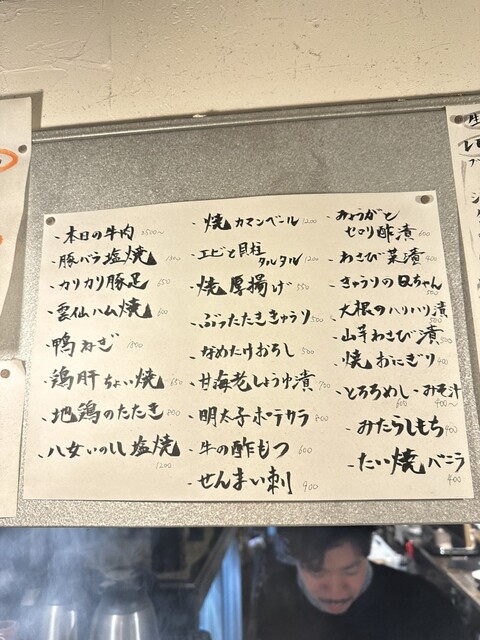 ・本日の牛肉 1500〜
・豚バラ塩焼
・カリカリ豚足 650
・雲仙ハム焼 600
・鴨ねぎ 1800
・鶏肝ちょい焼 650
・地鶏のたたき 800
・八女いのしし塩焼 1200
・焼カマンベール 1200
・エビと貝柱タルタル 1200
・焼厚揚げ 550
・ぶったたききゅうり 500
・なめたけおろし 500
・甘海老しょうゆ漬 700
・明太子ポテサラ 800
・牛の酢もつ 600
・せんまい刺 900
・みょうがと
セロリ酢漬 600
・わさび菜漬 400
・きゅうりのQちゃん
・大根のハリハリ漬
・山芋わさび漬 500
・焼おにぎり 400
・とろろめし・みそ汁
600 400〜
・みたらしもち 400
・たい焼バニラ
400